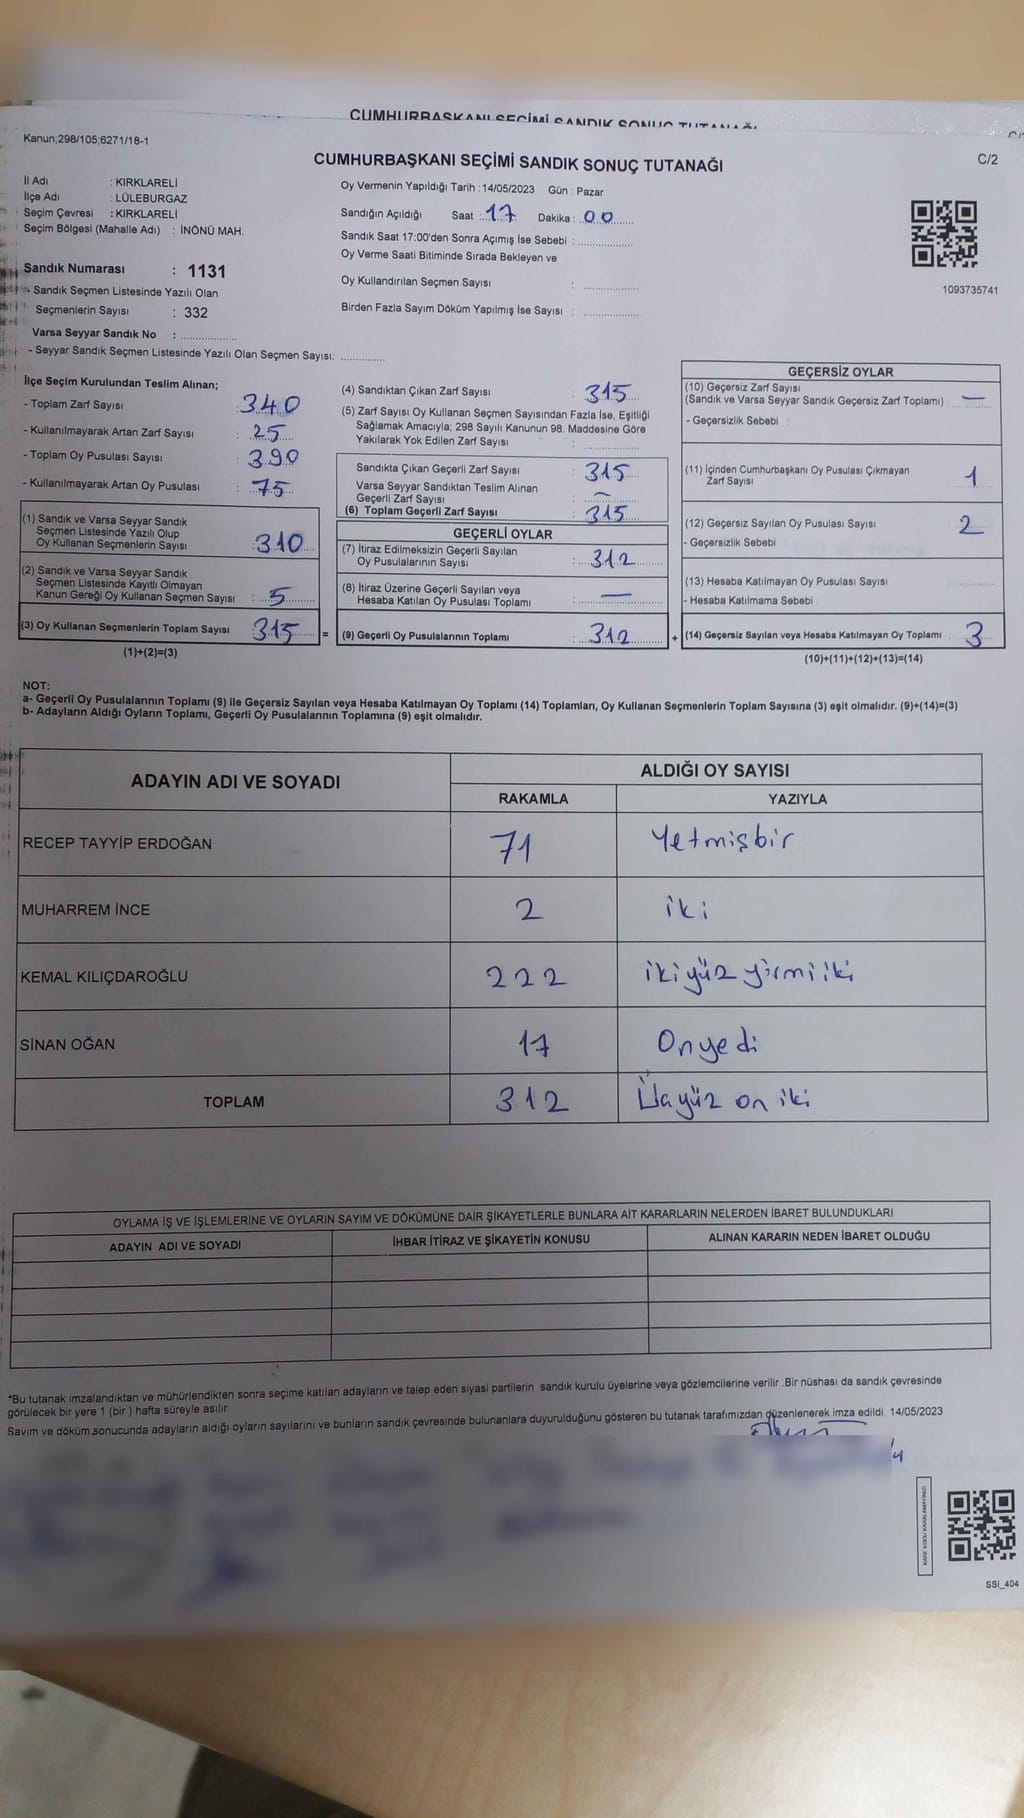 CUMHURBAŞKANI SEÇİMİ SANDIK SONUÇ TUTANAĞI
Kanun;298/105;6271/18-1
CUMHURBAŞKANI SEÇİMİ SANDIK SONUÇ TUTANAĞI
C/2
İl Adı : KIRKLARELİ
İlçe Adı : LÜLEBURGAZ
Seçim Çevresi : KIRKLARELİ
Seçim Bölgesi (Mahalle Adı) : İNÖNÜ MAH.
Sandık Numarası : 1131
- Sandık Seçmen Listesinde Yazılı Olan
Seçmenlerin Sayısı : 332
Varsa Seyyar Sandık No : ..................
- Seyyar Sandık Seçmen Listesinde Yazılı Olan Seçmen Sayısı: ..............
Oy Vermenin Yapıldığı Tarih : 14/05/2023 Gün : Pazar
Sandığın Açıldığı Saat : 17 Dakika : 00
Sandık Saat 17:00'den Sonra Açımış İse Sebebi : ..................
Oy Verme Saati Bitiminde Sırada Bekleyen ve
Oy Kullandırılan Seçmen Sayısı : ..................
Birden Fazla Sayım Döküm Yapılmış İse Sayısı : ..................
1093735741
İlçe Seçim Kurulundan Teslim Alınan;
- Toplam Zarf Sayısı : 340
- Kullanılmayarak Artan Zarf Sayısı : 25
- Toplam Oy Pusulası Sayısı : 390
- Kullanılmayarak Artan Oy Pusulası : 75
(1) Sandık ve Varsa Seyyar Sandık
Seçmen Listesinde Yazılı Olup
Oy Kullanan Seçmenlerin Sayısı : 310
(2) Sandık ve Varsa Seyyar Sandık
Seçmen Listesinde Kayıtlı Olmayan
Kanun Gereği Oy Kullanan Seçmen Sayısı : 5
(3) Oy Kullanan Seçmenlerin Toplam Sayısı : 315 =
(1)+(2)=(3)
(4) Sandıktan Çıkan Zarf Sayısı : 315
(5) Zarf Sayısı Oy Kullanan Seçmen Sayısından Fazla İse, Eşitliği
Sağlamak Amacıyla; 298 Sayılı Kanunun 98. Maddesine Göre
Yakılarak Yok Edilen Zarf Sayısı : ..................
Sandıkta Çıkan Geçerli Zarf Sayısı : 315
Varsa Seyyar Sandıktan Teslim Alınan
Geçerli Zarf Sayısı : –
(6) Toplam Geçerli Zarf Sayısı : 315
GEÇERLİ OYLAR
(7) İtiraz Edilmeksizin Geçerli Sayılan
Oy Pusulalarının Sayısı : 312
(8) İtiraz Üzerine Geçerli Sayılan veya
Hesaba Katılan Oy Pusulası Toplamı : —
(9) Geçerli Oy Pusulalarının Toplamı : 312 +
GEÇERSİZ OYLAR
(10) Geçersiz Zarf Sayısı
(Sandık ve Varsa Seyyar Sandık Geçersiz Zarf Toplamı) : —
- Geçersizlik Sebebi :
(11) İçinden Cumhurbaşkanı Oy Pusulası Çıkmayan
Zarf Sayısı 1
(12) Geçersiz Sayılan Oy Pusulası Sayısı 2
- Geçersizlik Sebebi
(13) Hesaba Katılmayan Oy Pusulası Sayısı
- Hesaba Katılmama Sebebi
(14) Geçersiz Sayılan veya Hesaba Katılmayan Oy Toplamı 3
(10)+(11)+(12)+(13)=(14)
NOT:
a- Geçerli Oy Pusulalarının Toplamı (9) ile Geçersiz Sayılan veya Hesaba Katılmayan Oy Toplamı (14) Toplamları, Oy Kullanan Seçmenlerin Toplam Sayısına (3) eşit olmalıdır. (9)+(14)=(3)
b- Adayların Aldığı Oyların Toplamı, Geçerli Oy Pusulalarının Toplamına (9) eşit olmalıdır.
ADAYIN ADI VE SOYADI
ALDIĞI OY SAYISI
RAKAMLA YAZIYLA
RECEP TAYYİP ERDOĞAN 71 Yetmişbir
MUHARREM İNCE 2 iki
KEMAL KILIÇDAROĞLU 222 ikiyüz yirmi iki
SİNAN OĞAN 17 Onyedi
TOPLAM 312 Üçyüz on iki
OYLAMA İŞ VE İŞLEMLERİNE VE OYLARIN SAYIM VE DÖKÜMÜNE DAİR ŞİKAYETLERLE BUNLARA AİT KARARLARIN NELERDEN İBARET BULUNDUKLARI
ADAYIN ADI VE SOYADI İHBAR İTİRAZ VE ŞİKAYETİN KONUSU ALINAN KARARIN NEDEN İBARET OLDUĞU
*Bu tutanak imzalandıktan ve mühürlendikten sonra seçime katılan adayların ve talep eden siyasi partilerin sandık kurulu üyelerine veya gözlemcilerine verilir .Bir nüshası da sandık çevresinde
görülecek bir yere 1 (bir ) hafta süreyle asılır
Sayım ve döküm sonucunda adayların aldığı oyların sayılarını ve bunların sandık çevresinde bulunanlara duyurulduğunu gösteren bu tutanak tarafımızdan düzenlenerek imza edildi 14/05/2023
SSI_404